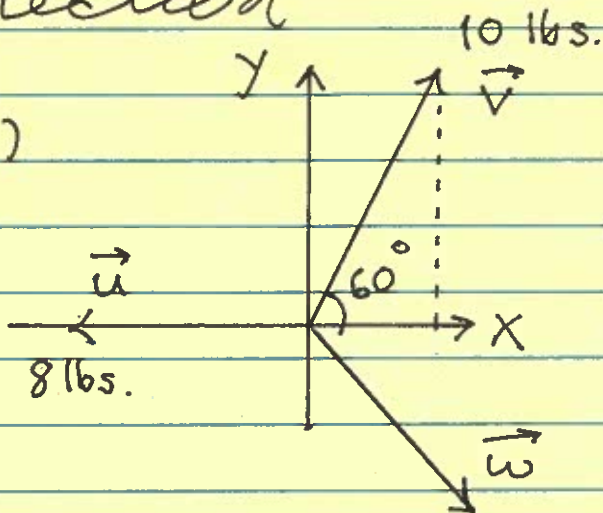 10 lbs.
y
v
)
u
60°
x
8 lbs.
w